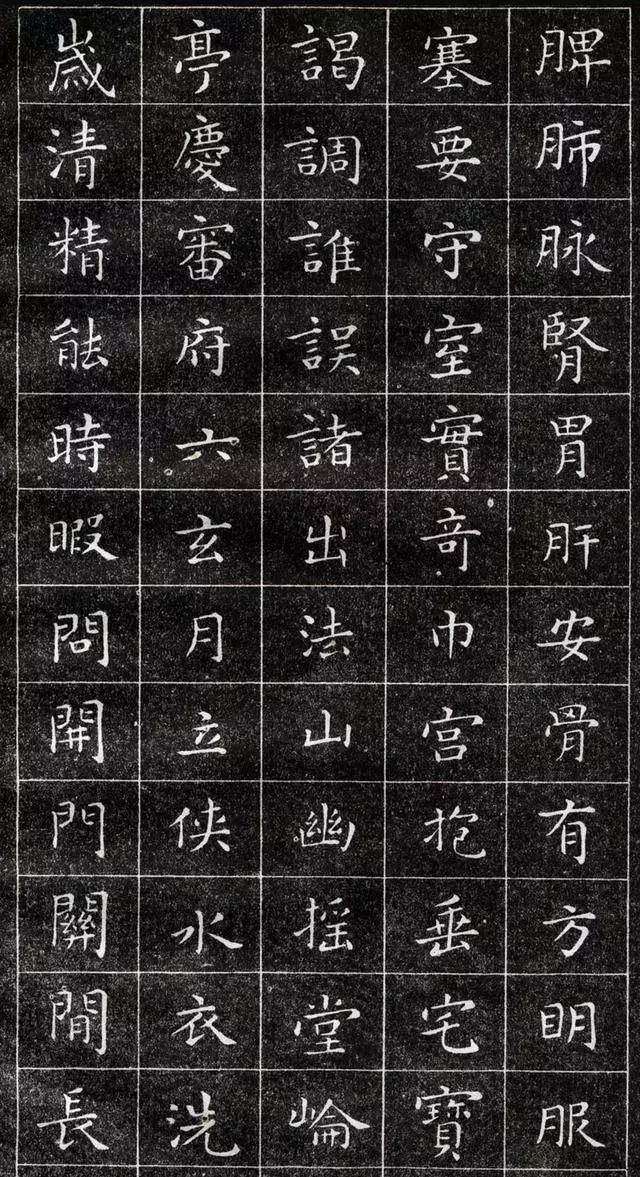 脾肺脉腎胃肝安骨有方明服
塞要守室實奇巾宫抱垂宅寶
謁調誰誤諸出法山幽摇堂崘
亭慶審府六玄月立俠水衣洗
歲清精能時暇問開門關閒長